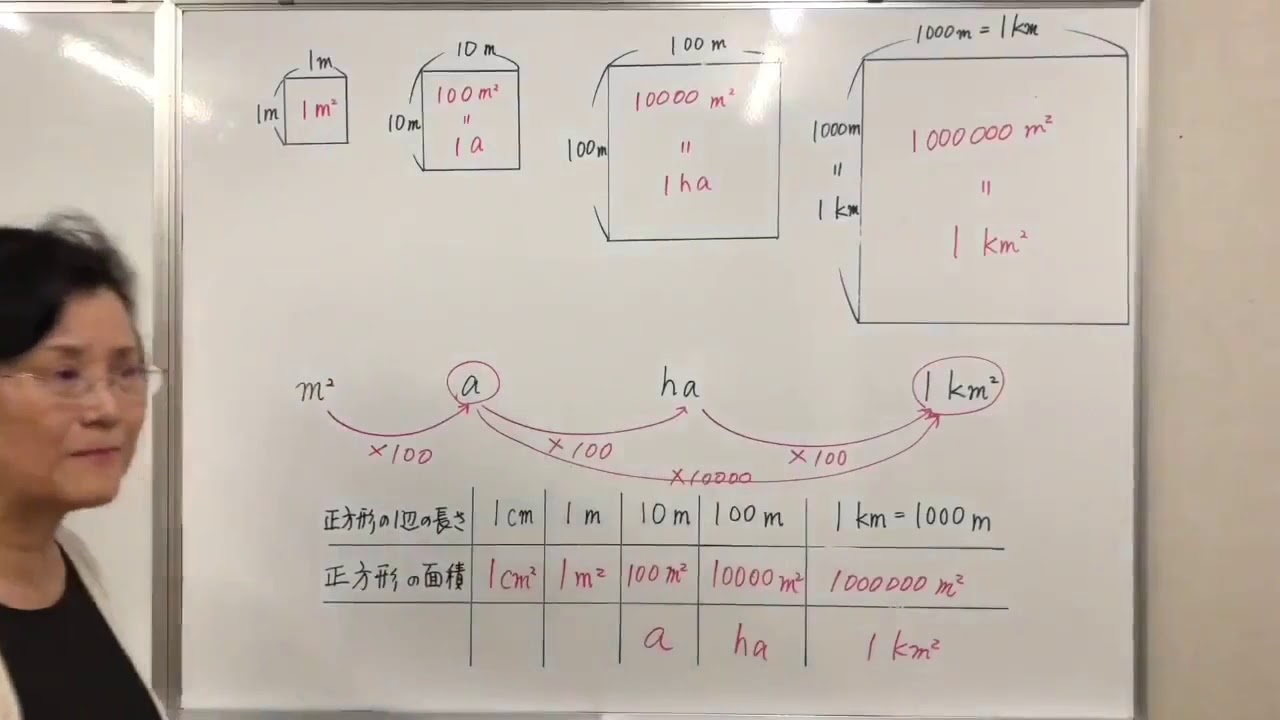 1m
1m
1m²
10m
10m
100m²
=
1a
100m
100m
10000 m²
=
1ha
1000m = 1km
1000m
=
1km
1000000 m²
=
1 km²
m² a ha 1 km²
×100 ×100 ×100
×10000
正方形の1辺の長さ 1cm 1m 10m 100m 1km=1000m
正方形の面積 1cm² 1m² 100m² 10000m² 1000000 m²
a ha 1 km²